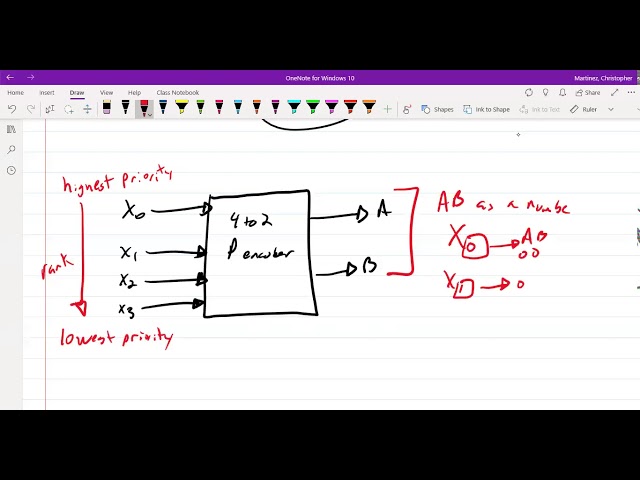 OneNote for Windows 10
Martinez, Christopher
Home Insert Draw View Help Class Notebook
Share
Shapes Ink to Shape Ink to Text Ruler
highest priority
X0
X1
X2
X3
rank
lowest priority
4 to 2
P encoder
A
B
AB as a numbe
X0 → AB
00
X1 → 0